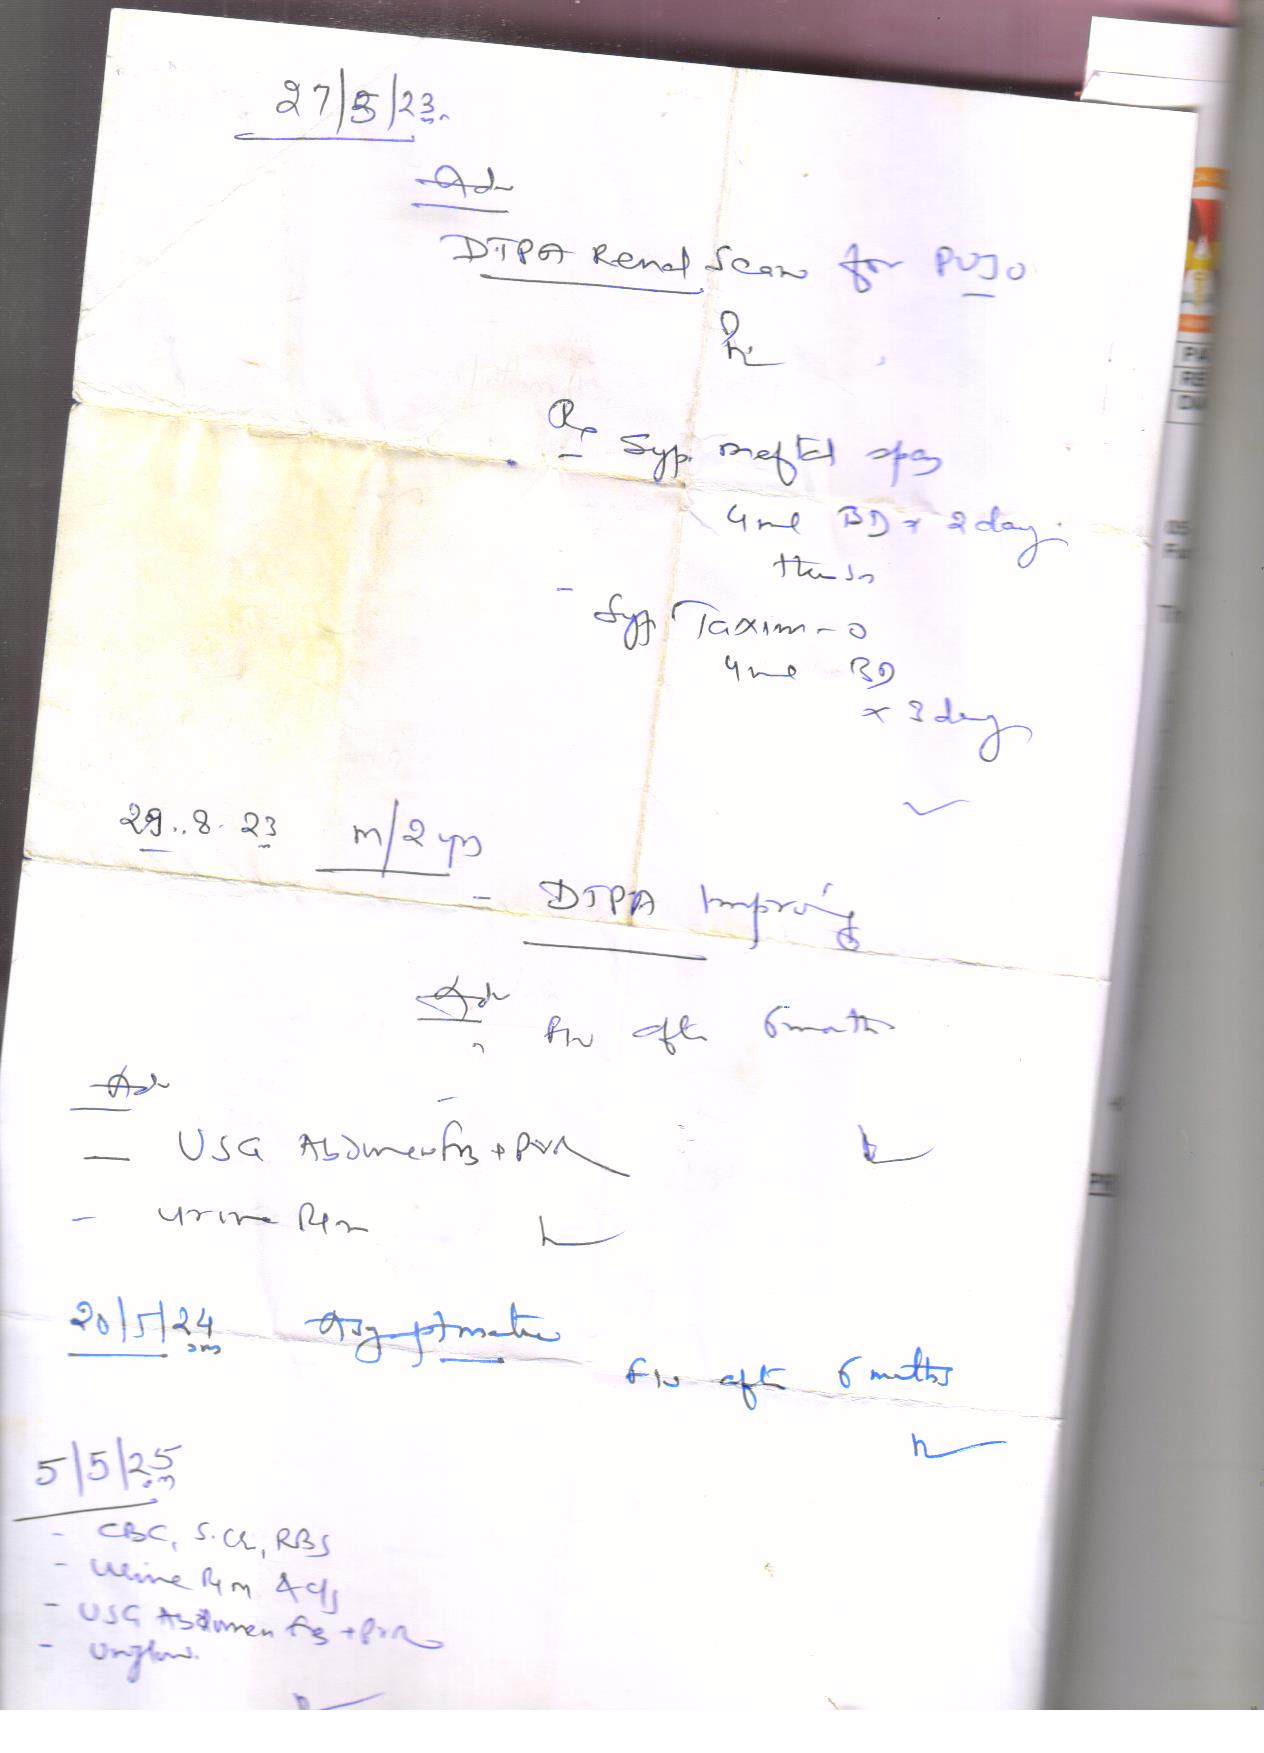 27/5/23
Adv
DTPA Renal Scan for PUJO
Rx
Syp. meftal spas
4 ml BD x 2 day.
then sos
- Syp Taxim-O
4 ml BD
x 3 day
29.8.23 m/2 yrs
- DTPA Improving
Adv
F/U after 6 months
Adv
- USG Abdomen FB + PVR
- Urine R/m
20/5/24 Asymptomatic
F/U after 6 months
5/5/25
- CBC, S.Cr, RBS
- Urine R/m & C/s
- USG Abdomen FB + PVR
- Uroflow.
PA
RE